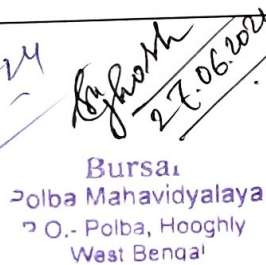 24
27.06.2024
Bursar
Polba Mahavidyalaya
P.O.- Polba, Hooghly
West Bengal